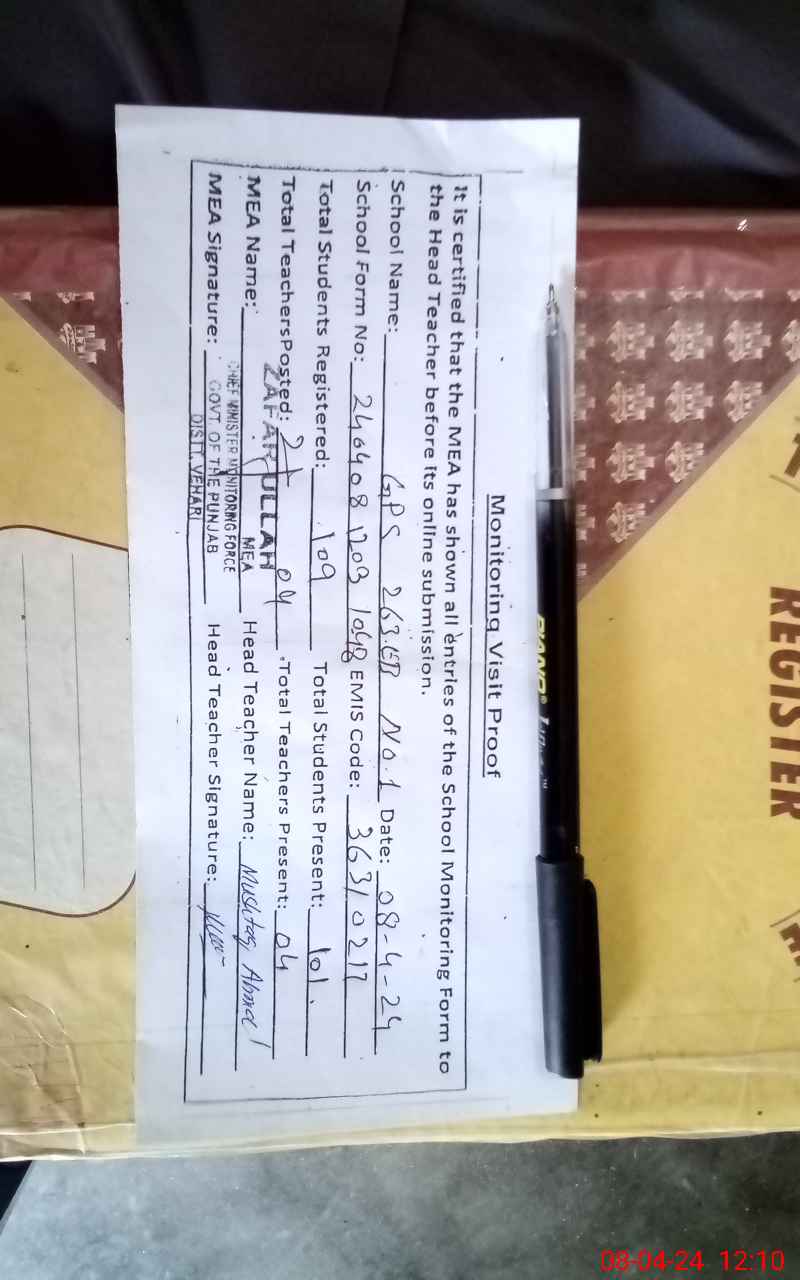 Monitoring Visit Proof
It is certified that the MEA has shown all entries of the School Monitoring Form to
the Head Teacher before its online submission.
School Name: GPS 263.EB No.1 Date: 08-4-24
School Form No: 246408 1203 1048 EMIS Code: 36310217
Total Students Registered: 109 Total Students Present: 101.
Total TeachersPosted: 04 Total Teachers Present: 04
ZAFAR ULLAH
MEA Name: MEA Head Teacher Name: Mushtaq Ahmad
CHIEF MINISTER MONITORING FORCE
MEA Signature: GOVT. OF THE PUNJAB Head Teacher Signature:
DISTT. VEHARI
PIANO
REGISTER
08-04-24 12:10